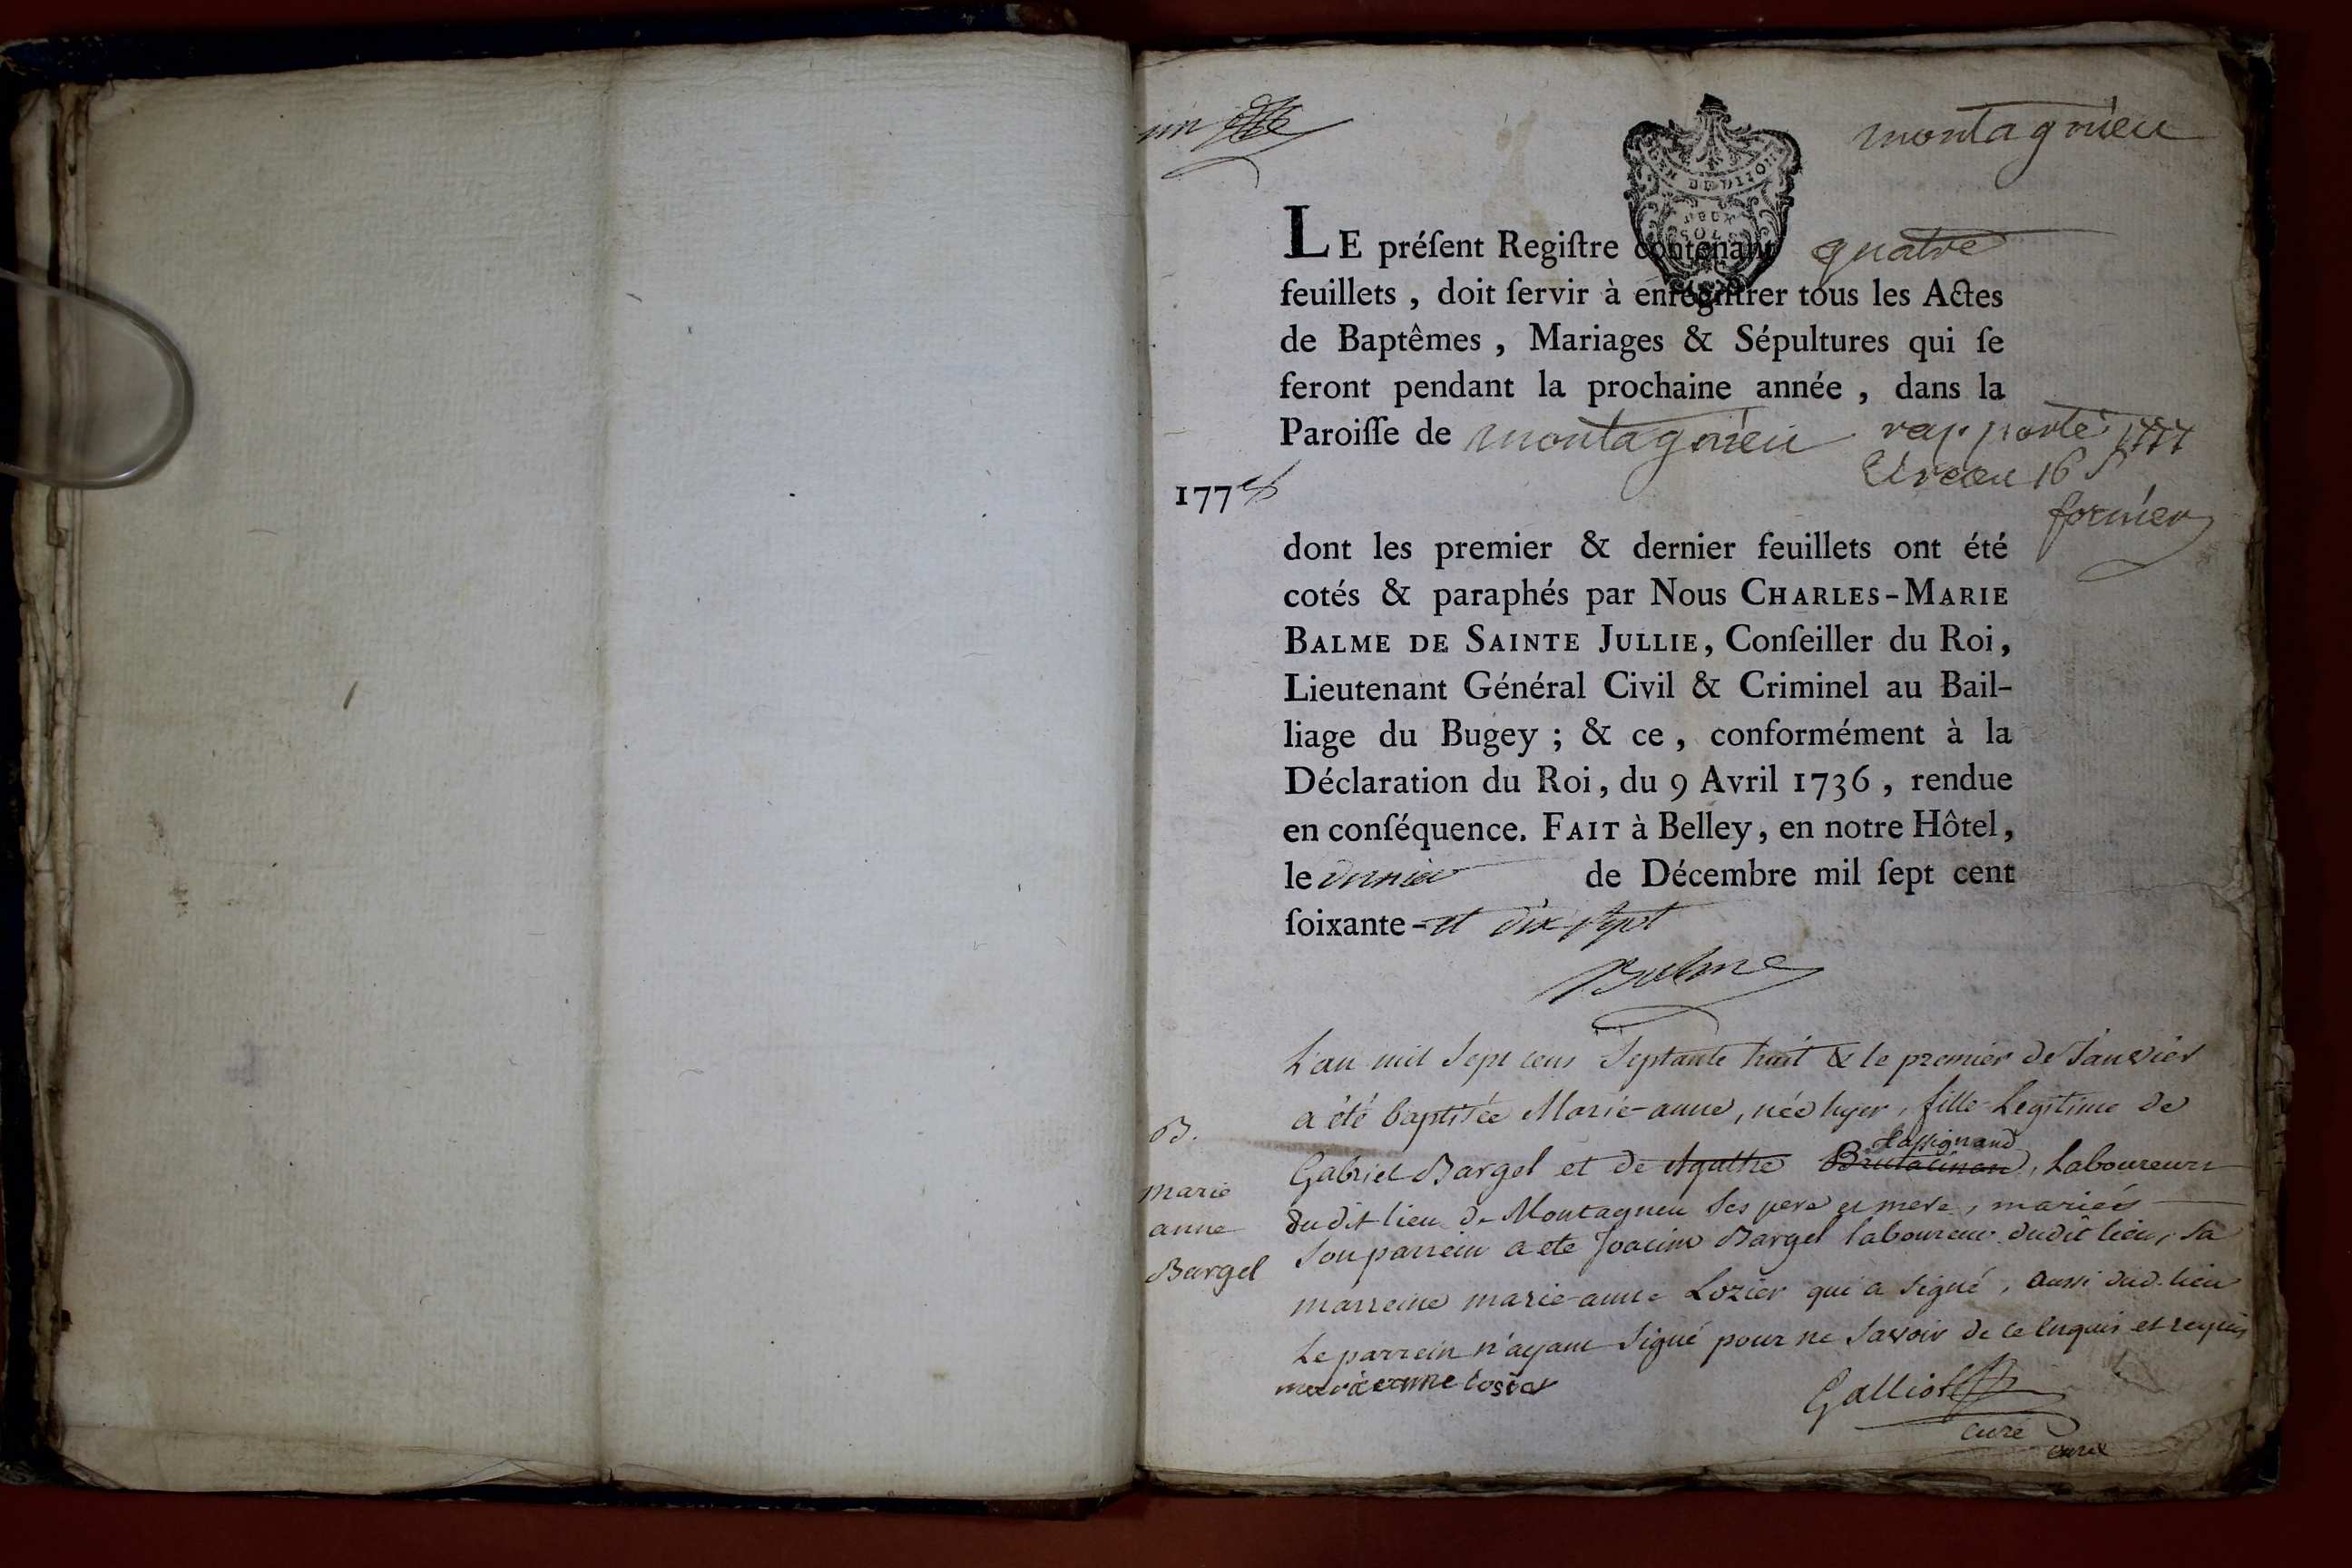 un
montagnieu
GEN DE DIJON
DEUX
SOLS
LE préſent Regiſtre contenant quatre
feuillets , doit ſervir à enregiſtrer tous les Actes
de Baptêmes , Mariages & Sépultures qui ſe
feront pendant la prochaine année , dans la
Paroiſſe de montagnieu
rapporté 1777
16 s
1778
dont les premier & dernier feuillets ont été
cotés & paraphés par Nous CHARLES-MARIE
BALME DE SAINTE JULLIE, Conſeiller du Roi,
Lieutenant Général Civil & Criminel au Bail-
liage du Bugey ; & ce , conformément à la
Déclaration du Roi, du 9 Avril 1736 , rendue
en conſéquence. FAIT à Belley, en notre Hôtel,
le dernier de Décembre mil ſept cent
ſoixante-et dix sept
Balme
L'an mil Sept cens Septante huit & le premier de Janvier
a été baptisée Marie-anne, née hyer, fille Legitime de
B.
Passignand
Gabriel Bargel et de Agathe , Laboureurs
marie
dudit lieu de Montagneu Ses pere et mere, mariés
anne
Son parrein a ete Joacim Bargel laboureur dudit lieu, Sa
Bargel
marreine marie-anne Lozier qui a signé, aussi dud. lieu
Le parrein n'ayant Signé pour ne Savoir de ce enquis et requis
marie anne losier
Galliot
curé
curé